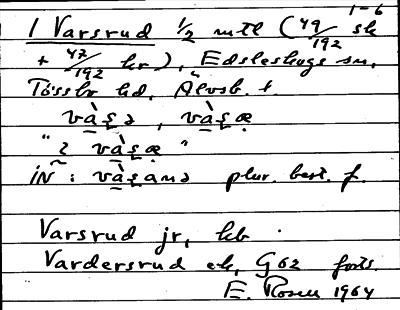 1-6
1 Varsrud 1/2 mtl (49/192 sk
+ 47/192 kr), Edsleskogs sn,
Tössbo hd, Älvsb. l.
và̠ʂɔ, và̠ʂæ
"2 và̠ʂæ"
iN: và̠ʂaɴɔ plur. best. f.
Varsrud jr, kb.
Vardersrud ek, G62 forts.
E. Rosen 1964